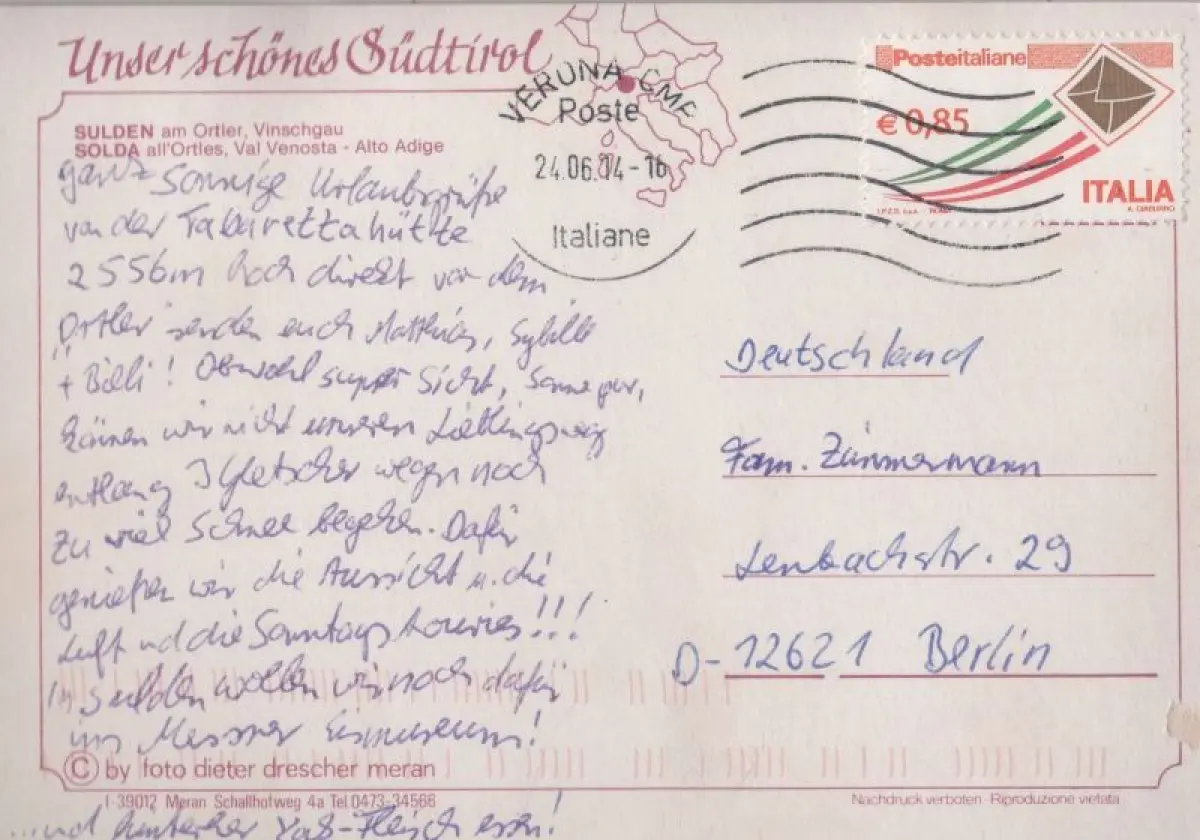 Unser schönes Südtirol
SULDEN am Ortler, Vinschgau
SOLDA all'Ortles, Val Venosta - Alto Adige
ganz Sonnige Urlaubsgrüße
von der Tabarettahütte
2556m hoch direkt vor dem
Ortler senden euch Matthias, Sybille
+ ! Obwohl super Sicht, Sonne pur,
können wir nicht unseren Lieblingsweg
entlang 3 Gletscher wegen noch
zu viel Schnee begehen. Dafür
genießen wir die Aussicht u. die
Luft und die Sonntagstouries!!!
In Sulden wollen wir noch dafür
ins Messner Eismuseum!
© by foto dieter drescher meran
I-39012 Meran Schallhofweg 4a Tel 0473-34566
...und hinterher Yak-Fleisch essen!
VERONA CMP
Poste
24.06.14-16
Italiane
Posteitaliane
€ 0,85
ITALIA
I.P.Z.S. S.p.A. - ROMA
Deutschland
Fam. Zimmermann
Lenbachstr. 29
D-12621 Berlin
Nachdruck verboten - Riproduzione vietata